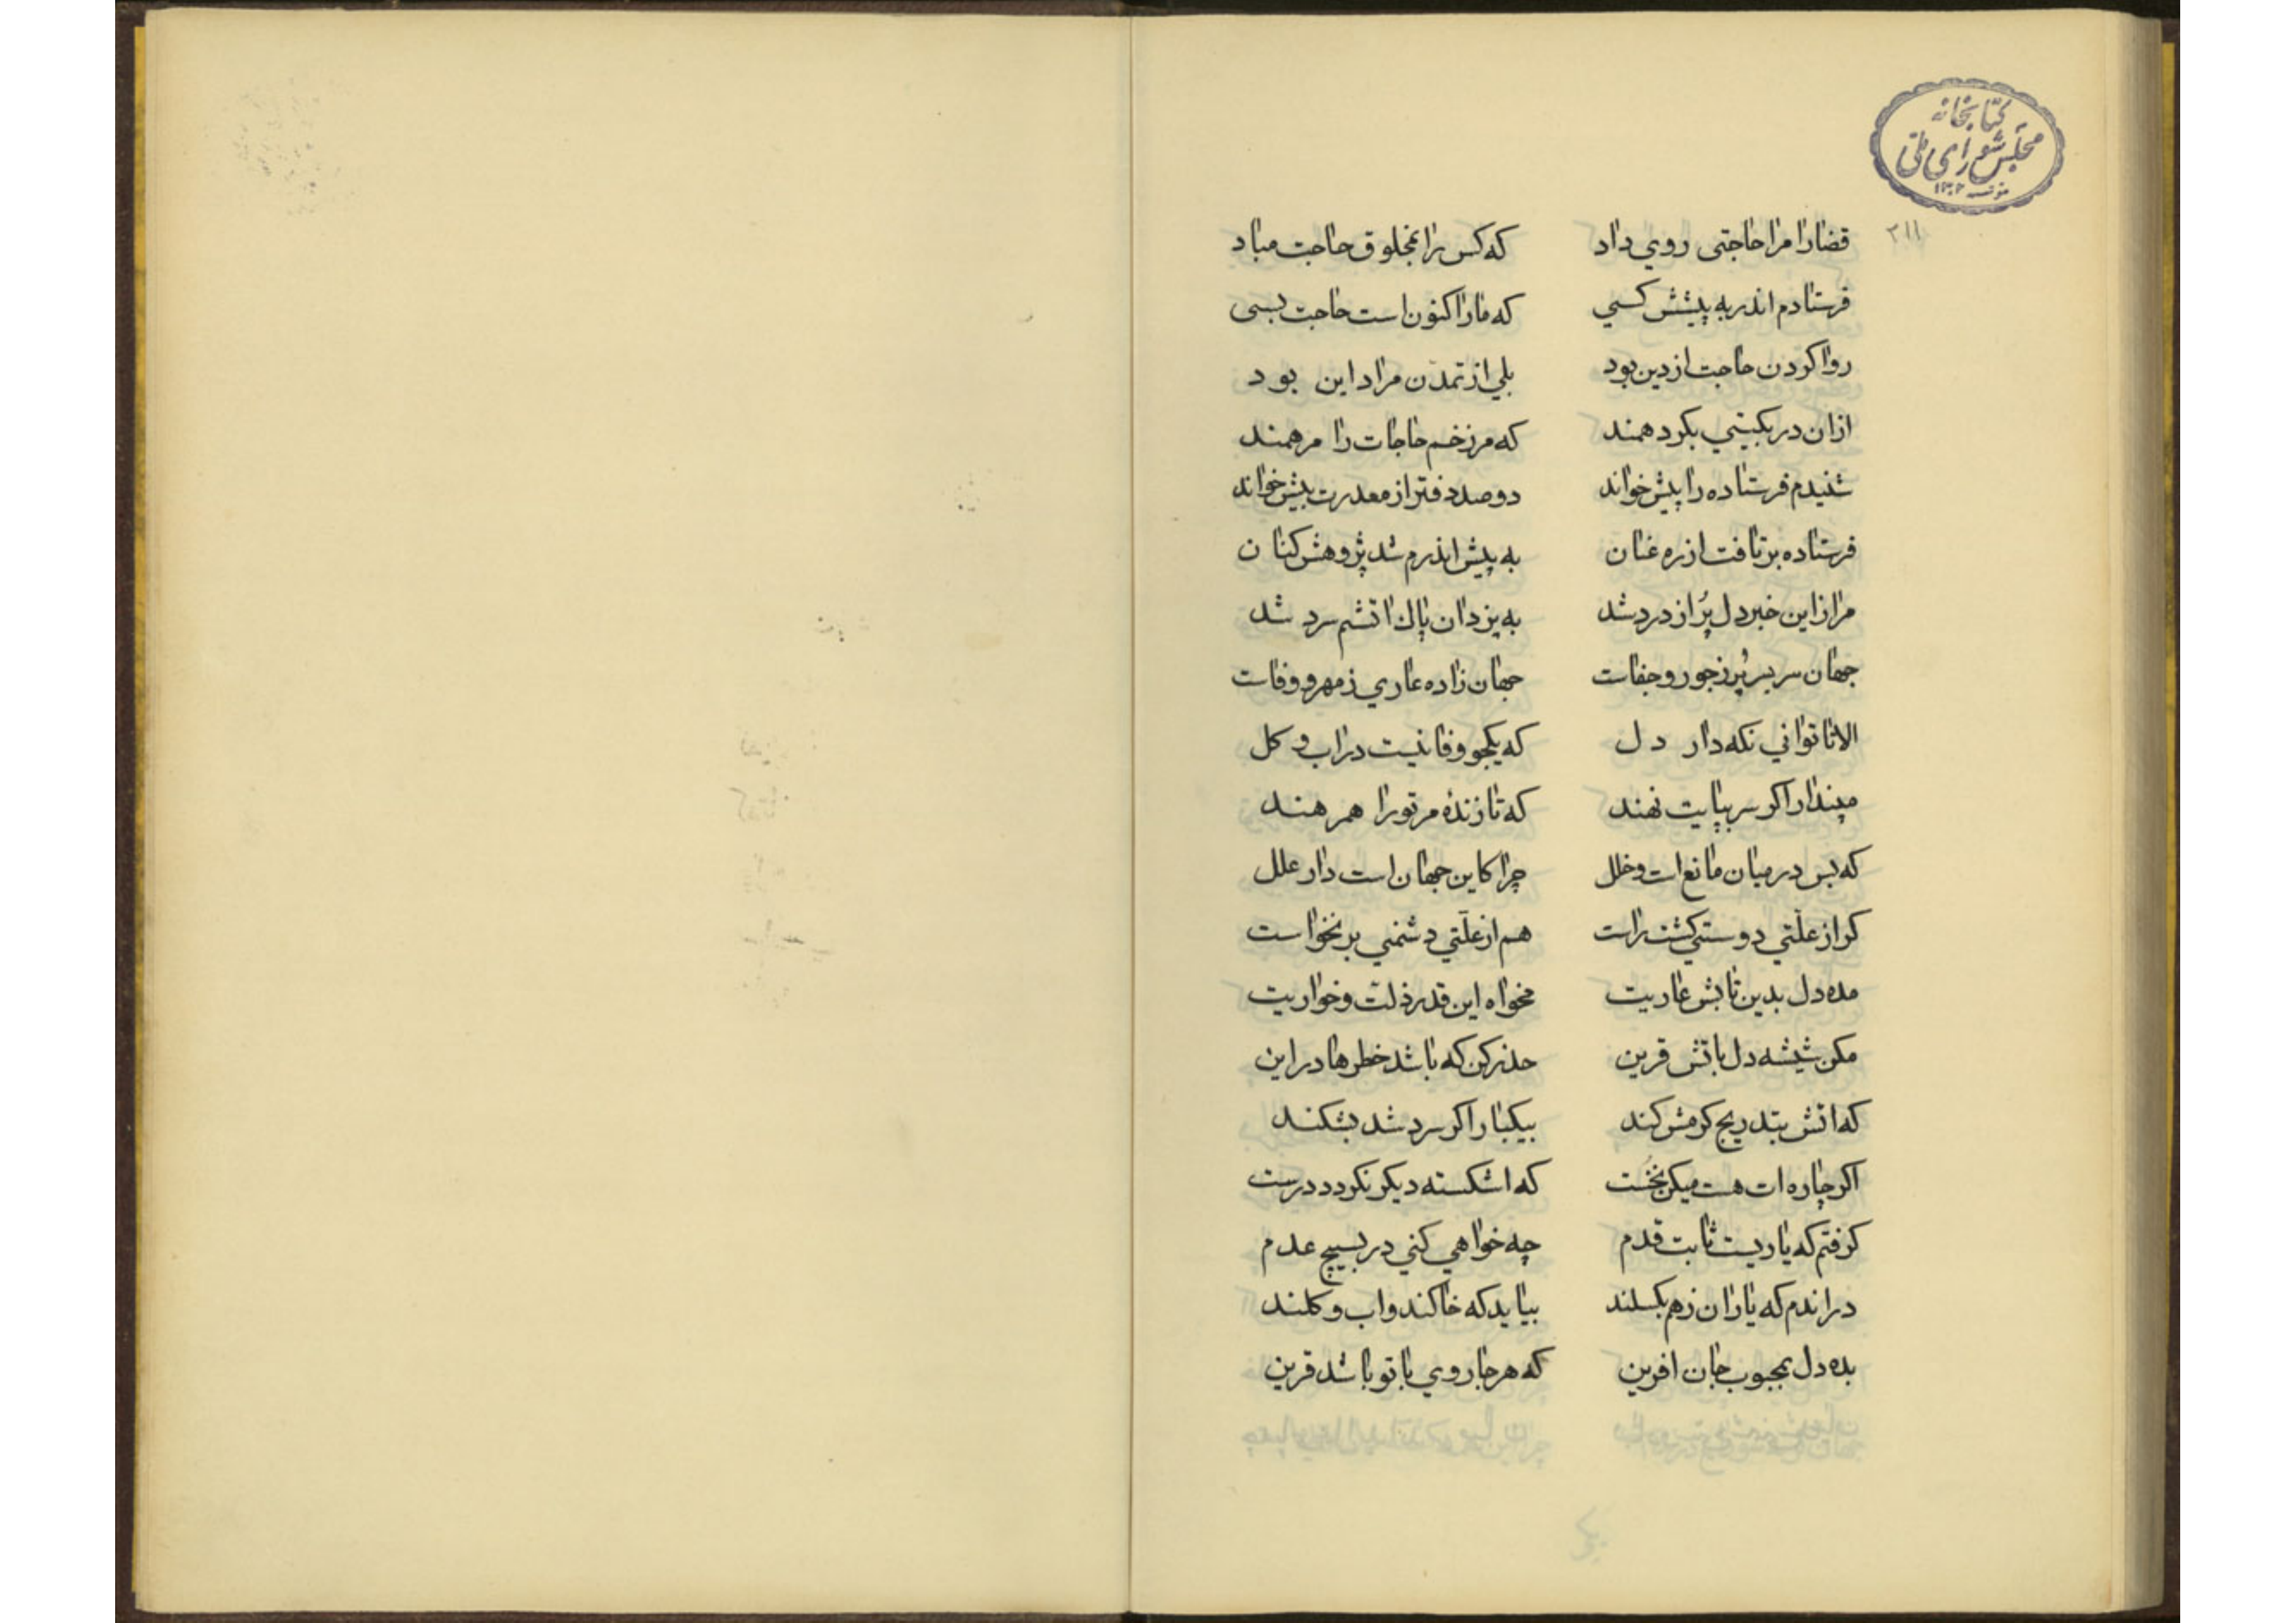 کتابخانه
مجلس شورای ملی
۲۱۱
قضارا مرا حاجتی روي داد که کس را بمخلوق حاجت مباد
فرستادم اندر به پیشش کسي که مارا کنون است حاجت بسی
روا کردن حاجت از دین بود بلي از تمدّن مراد این بود
ازان در بکیتي بکرد همند که مر زخم حاجات را مرهمند
شنیدم فرستاده را پیش خواند دو صد دفتر از معدرت بیش خواند
فرستاده بر تافت از ره عنان به پیش اندرم شد پژوهش کنان
مرا زاین خبر دل پُر از درد شد به یزدان پاك اتشم سرد شد
جهان سر بسر پُر ز جور و جفاست جهان زاده عاري ز مهر و وفاست
الا تا تواني نکه دار دل که یکجو وفا نیست در اب و کل
مپندار اکر سر بپایت نهند که تا زندهٔ مر تورا همرهند
که بس در میان مانع است و خلل چرا کاین جهان است دار علل
کر از علّتي دوستي کشت راست هم از علّتي دشمني بر نخواست
مده دل بدین تابش عاریت مخواه این قدر ذلت و خواریت
مکن شیشه دل باتش قرین حذر کن که باشد خطرها در این
که اتش بتدریج کرمش کند بیکبار اکر سرد شد بشکند
اکر چاره ات هست میکن نخُست که اشکسته دیکر نکردد درست
کرفتم که یاریست ثابت قدم چه خواهي کني در بسیچ عدم
در اندم که یاران ز هم بکسلند بیاید که خاکند و اب و کلند
بده دل بمحبوب جان افرین که هر جا روي با تو باشد قرین